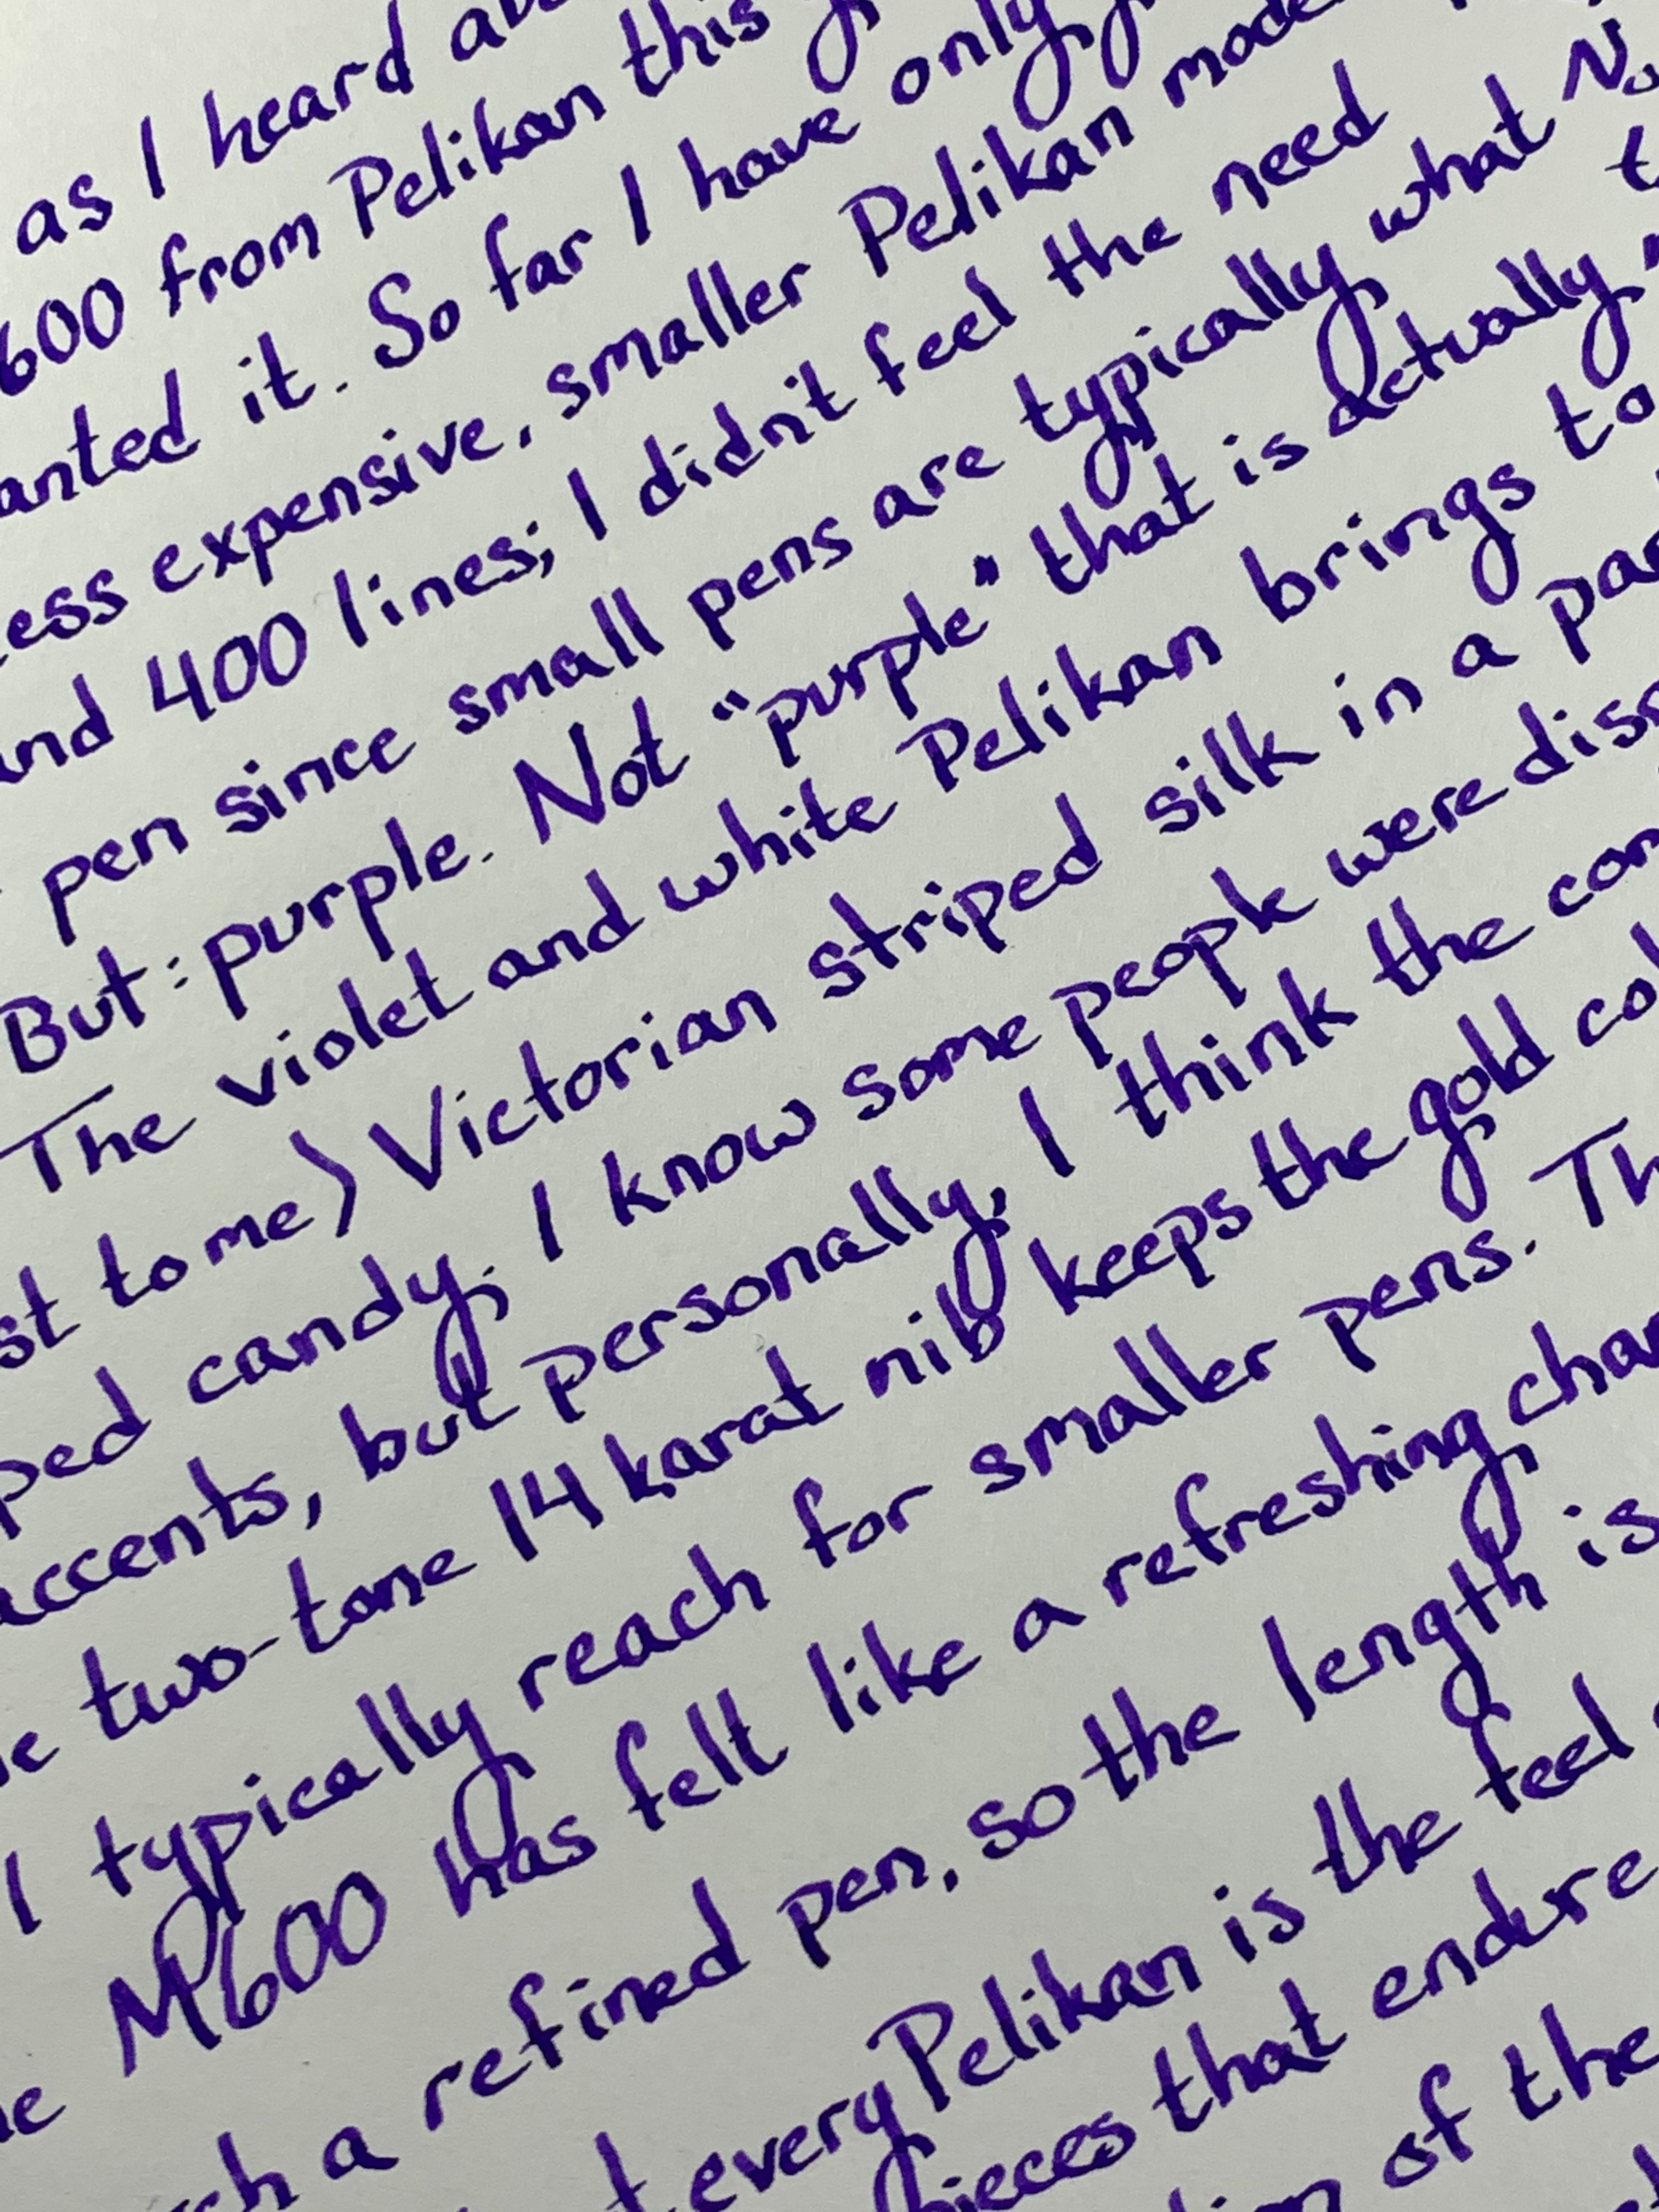 as I heard
600 from Pelikan this
it. So far I have only
expensive, smaller Pelikan
400 lines; I didn't feel the need
pen since small pens are typically what
But: purple. Not "purple" that is actually
The violet and white Pelikan brings to
to me) Victorian striped silk in a
candy. I know some people were
accents, but personally, I think the
two-tone 14 karat nib keeps the gold
I typically reach for smaller pens.
M600 has felt like a refreshing
a refined pen, so the length is
every Pelikan is the feel
that endure
of the